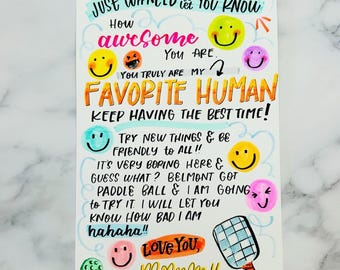 JUST WANTED to let YOU KNOW
HOW
awesome
YOU ARE
YOU TRULY ARE MY
FAVORITE HUMAN
KEEP HAVING THE BEST TIME!
TRY NEW THINGS & BE
FRIENDLY TO ALL!!
IT'S VERY BORING HERE &
GUESS WHAT? BELMONT GOT
PADDLE BALL & I AM GOING
to TRY IT I WILL LET YOU
KNOW HOW BAD I AM
hahaha!!
LOVE YOU,